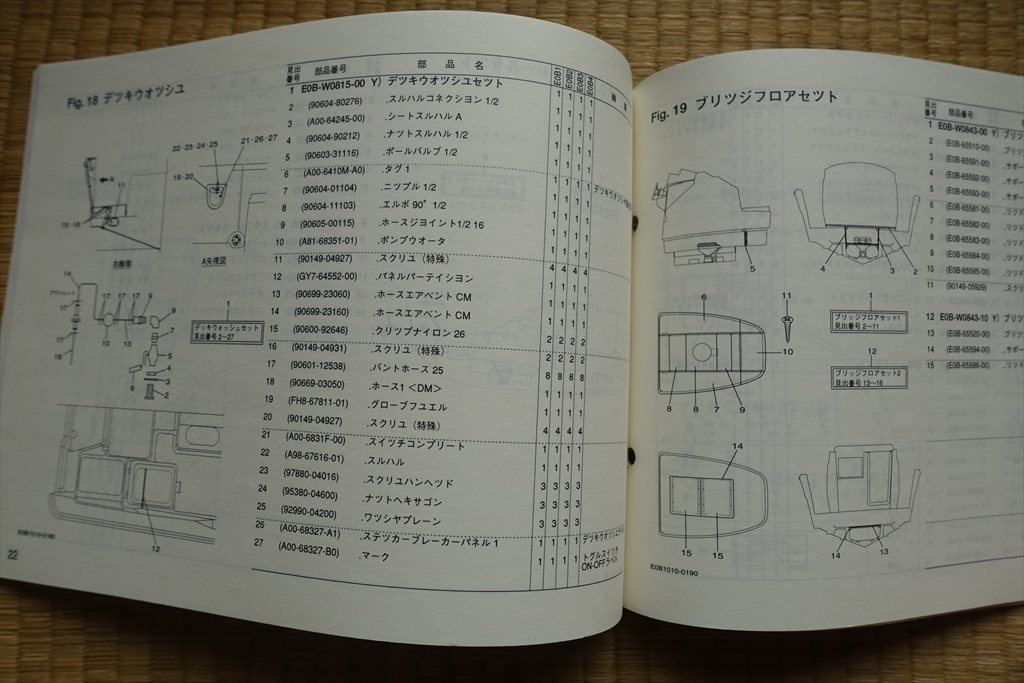 Fig. 18 デツキウオツシユ
22・23・24・25
21・26・27
19・20
A
11
15・16
右舷側
A矢視図
14
17 17 17
9
13 10 13
7
17
18
5
4
3
2
1
デッキウォッシュセット
見出番号 2〜27
12
E0B1010-0180
22
見出番号 部品番号 部品名 E0B1 E0B2 E0B3 E0B4 摘要
1 E0B-W0815-00 Y) デツキウオツシユセツト 1 1 1 1
2 (90604-80276) .スルハルコネクシヨン 1/2 1 1 1 1
3 (A00-64245-00) .シートスルハル A 1 1 1 1
4 (90604-90212) .ナツトスルハル 1/2 1 1 1 1
5 (90603-31116) .ボールバルブ 1/2 1 1 1 1
6 (A00-6410M-A0) .タグ 1 1 1 1 1
7 (90604-01104) .ニツプル 1/2 1 1 1 1
8 (90604-11103) .エルボ 90° 1/2 1 1 1 1
9 (90605-00115) .ホースジヨイント1/2 16 1 1 1 1
10 (A81-68351-01) .ポンプウオータ 1 1 1 1
11 (90149-04927) .スクリユ（特殊） 4 4 4 4
12 (GY7-64552-00) .パネルパーテイシヨン 1 1 1 1
13 (90699-23060) .ホースエアベント CM 1 1 1 1
14 (90699-23160) .ホースエアベント CM 1 1 1 1
15 (90600-92646) .クリツプナイロン 26 2 2 2 2
16 (90149-04931) .スクリユ（特殊） 2 2 2 2
17 (90601-12538) .バントホース 25 8 8 8 8
18 (90669-03050) .ホース1＜DM＞ 1 1 1 1
19 (FH8-67811-01) .グローブフユエル 1 1 1 1
20 (90149-04927) .スクリユ（特殊） 4 4 4 4
21 (A00-6831F-00) .スイツチコンプリート 1 1 1 1
22 (A98-67616-01) .スルハル 1 1 1 1
23 (97880-04016) .スクリユパンヘツド 3 3 3 3
24 (95380-04600) .ナツトヘキサゴン 3 3 3 3
25 (92990-04200) .ワツシヤプレーン 3 3 3 3
26 (A00-68327-A1) .ステツカーブレーカーパネル 1 1 1 1 1
27 (A00-68327-B0) .マーク 1 1 1 1 トグルスイツチ
ON-OFFラベル
Fig. 19 ブリツジフロアセツト
5
4 3 2
6
11
10
8 8 7 9
1
ブリッジフロアセット1
見出番号 2〜11
12
ブリッジフロアセット2
見出番号 13〜16
14
15 15
14 13
E0B1010-0190
見出番号 部品番号
1 E0B-W0843-00 Y) ブリツ
2 (E0B-65510-00) .ブリツ
3 (E0B-65591-00)
4 (E0B-65592-00) .サポー
5 (E0B-65593-00)
6 (E0B-65581-00)
7 (E0B-65582-00) .リツド
8 (E0B-65583-00) .リツド
9 (E0B-65584-00) .リツド
10 (E0B-65585-00) .リツド
11 (90149-05929) .スクリ
12 E0B-W0843-10 Y) ブリツ
13 (E0B-65520-00)
14 (E0B-65594-00) .サポー
15 (E0B-65586-00) .リツド